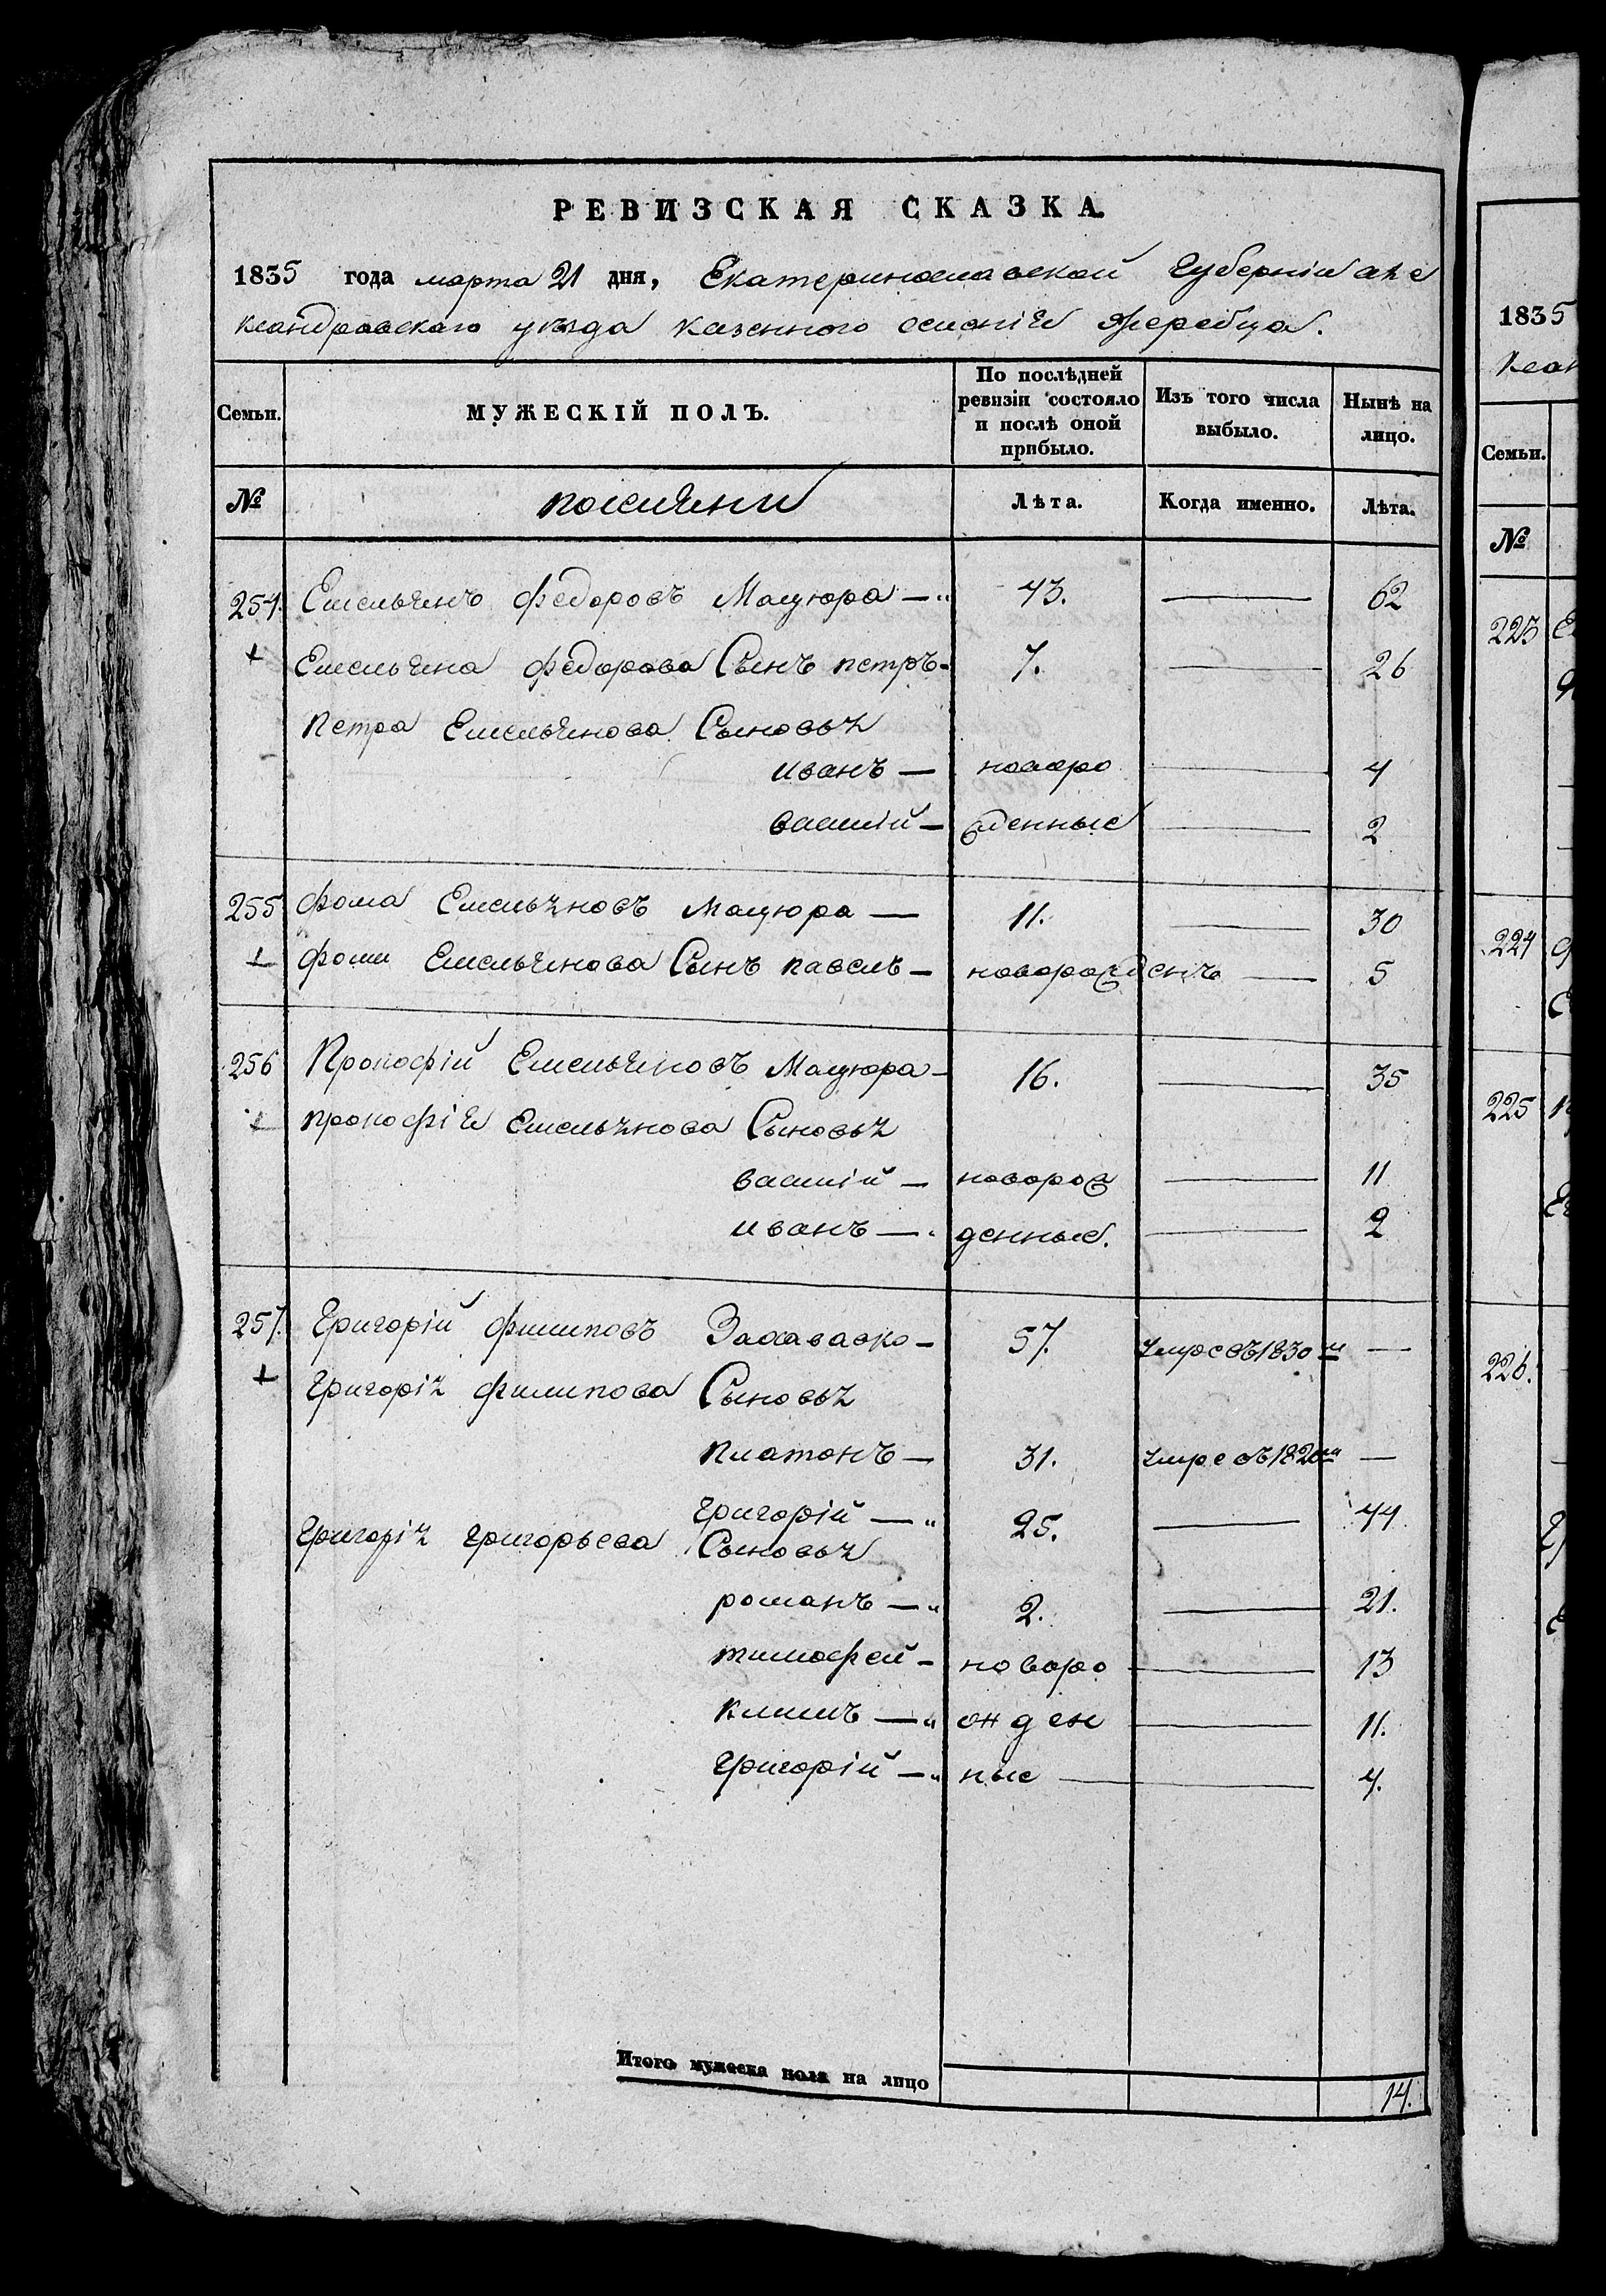 РЕВИЗСКАЯ СКАЗКА.
1835 года марта 21 дня, Екатеринославской Губерніи але
ксандровскаго уезда казенного селенія Жеребца.
Семьи. МУЖЕСКІЙ ПОЛЪ. По послѣдней ревизіи состояло и послѣ оной прибыло. Изъ того числа выбыло. Нынѣ на лицо.
№ поселяни Лѣта. Когда именно. Лѣта.
254. Емельянъ федоровъ Мацюра — 43. — 62
+ Емельяна федорова Сынъ петръ 7. — 26
Петра Емельянова Сыновья
иванъ — новоро — 4
василій — жденные — 2
255 фома Емельяновъ Мацюра — 11. — 30
+ фоми Емельянова Сынъ павелъ — новорожденъ — 5
256 Прокофій Емельяновъ Мацюра — 16. — 35
+ прокофія Емельянова Сыновья
василій — новорож — 11
иванъ — денные. — 2
257. Григорій филиповъ — 57. умре въ 1830м —
+ Григорія филипова Сыновья
платонъ — 31. умре въ 1820м —
григорій — 25. — 44
Григорія григорьева Сыновья
романъ — 2. — 21.
тимофей — новоро — 13
климъ — ж ден — 11.
григорій — ные — 4.
Итого мужеска пола на лицо 14.
1835
ксан
Семьи.
№
223
224
225
226.